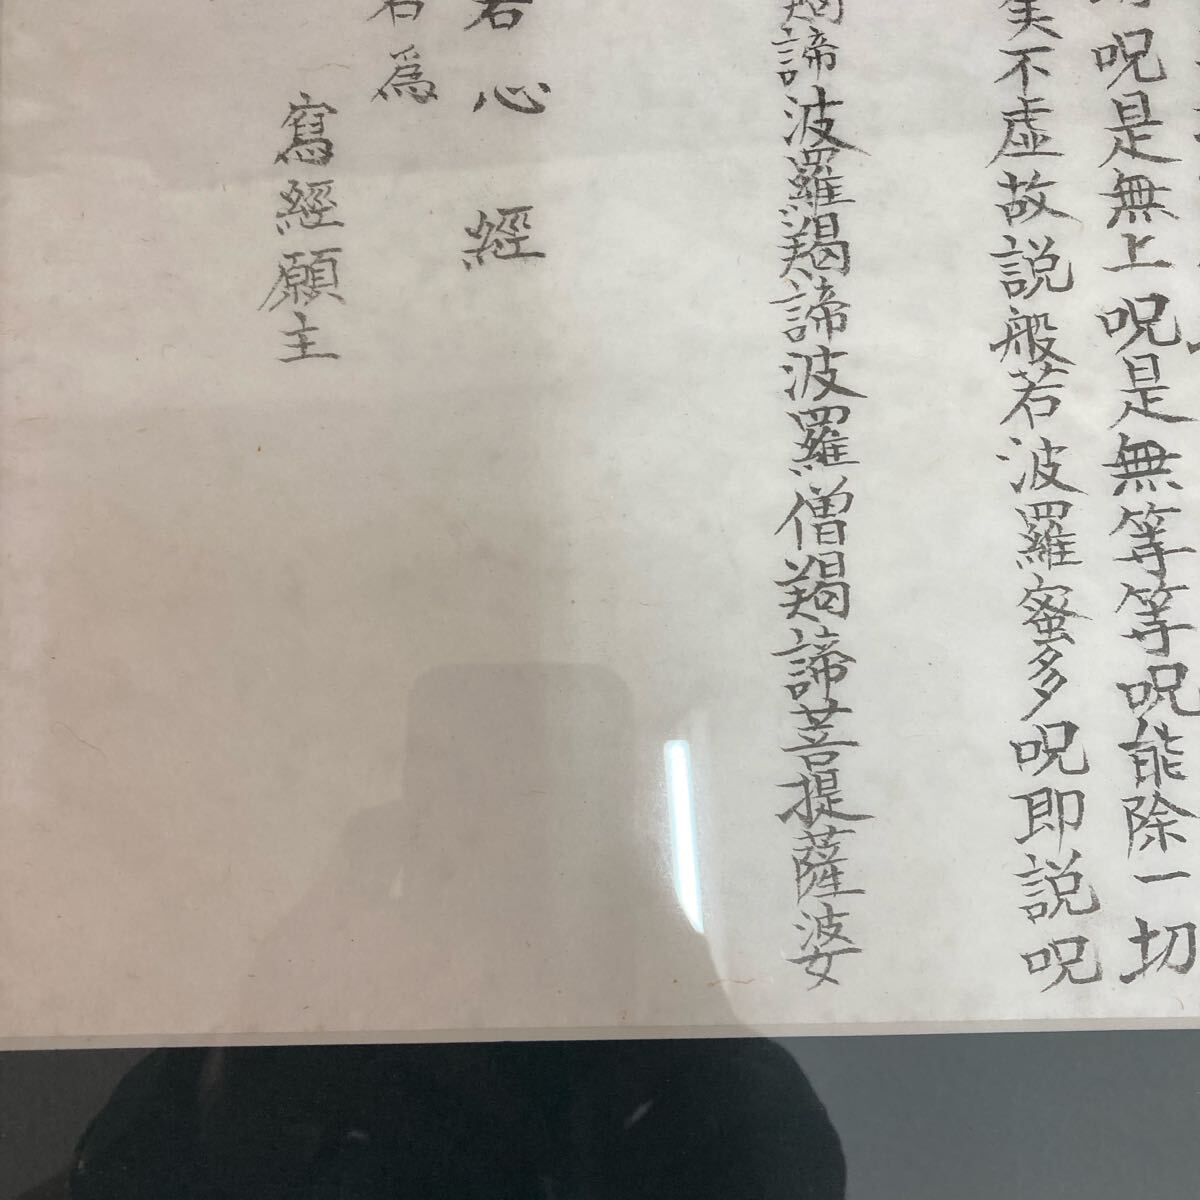 呪是無上呪是無等等呪能除一切
不虛故説般若波羅蜜多呪即説呪
羯諦波羅羯諦波羅僧羯諦菩提薩婆
若心經
為
寫經願主